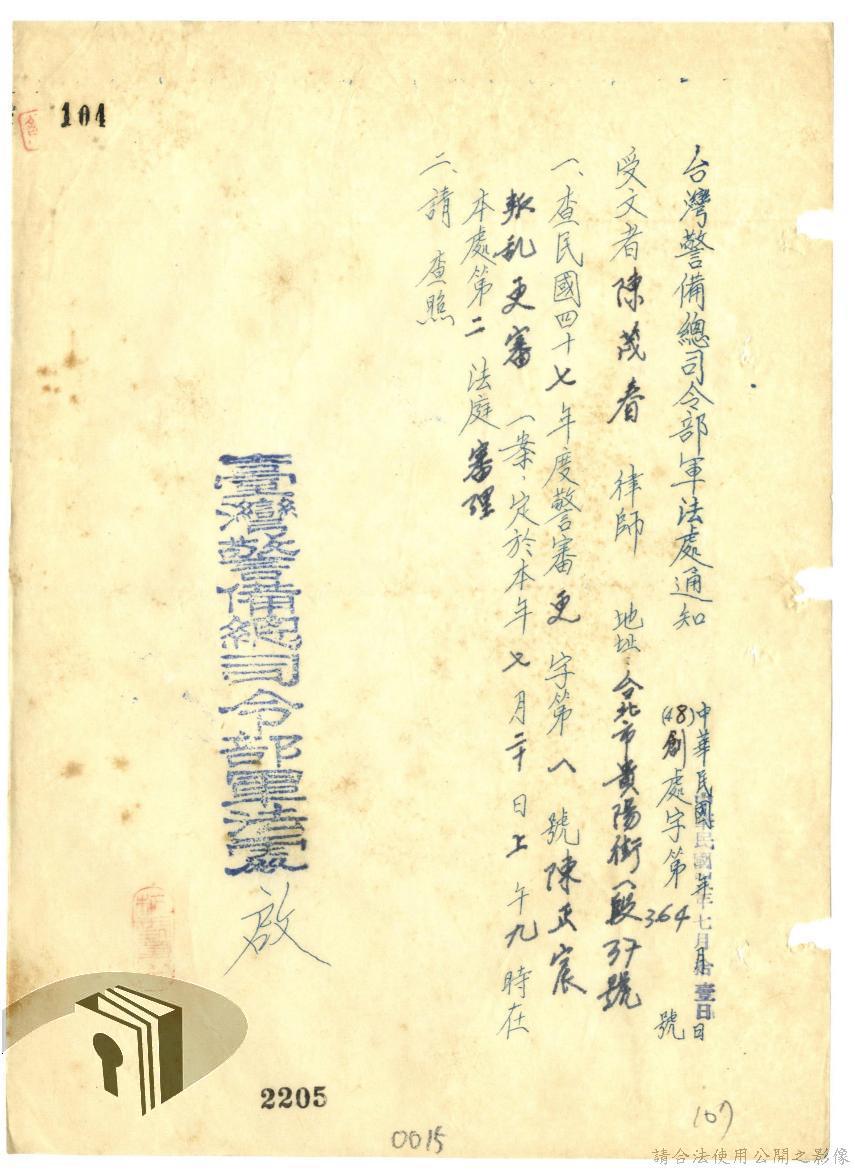 104
台灣警備總司令部軍法處通知
中華民國 年七月拾壹日
(48)創處字第364號
受文者陳茂春 律師 地址:台北市貴陽街一段37號
一、查民國四十七年度警審更字第八號陳正宸
叛乱更審 一案,定於本年七月二十日上午九時在
本處第二法庭審理
二、請 查照
臺灣警備總司令部軍法處
啟
2205
0015
107
請合法使用公開之影像